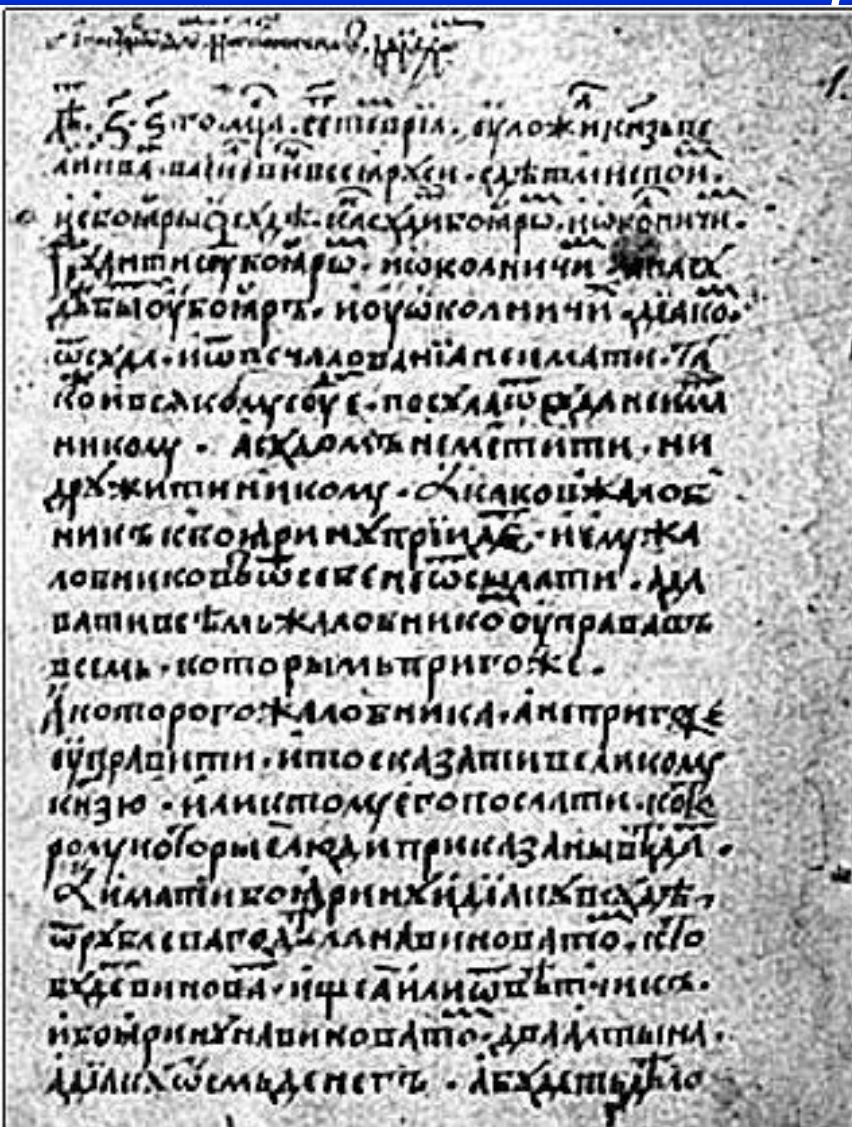 лѣ. ҂ꙅ. ꙅ го мц҃а септевріа. ѹложи кнѧзь ве
ликиі ива васіліеви всеꙗ рꙋси. с дѣтми своі.
и с боꙗры ѡ сꙋдѣ. како сꙋди боꙗрѡ. и ѡколничи.
Сꙋдити сꙋ боꙗрѡ. и ѡколничи. а на сꙋ
дѣ бы ѹ боꙗръ. и ѹ ѡколничи. діако.
ѿ сꙋда. и ѿ печалованіа не имати. та
ко и всѧкому судье. посꙋла ѿ сꙋда не има
никому. а сꙋдомъ не мстити. ни
дрꙋжити никому. а каков жалоб
никъ к боꙗринꙋ прїиде. и ему жа
лобниковъ ѿ себе не ѿсылати. а да
вати всѣмь жалобнико ѹправа въ
всемь. которымь пригоже.
А которого жалобника. а непригоже
ѹправити. и то сказати великому
кнѧзю. или к тому его послати. кото
рому которые люди приказаны вѣда.
А имати боꙗринꙋ и діакꙋ в сꙋдѣ.
ѿ рꙋблеваго дѣла на виновато. кто
бꙋде винова. ищеа или ѿвѣтчикъ.
и боꙗринꙋ на виновато. два алтына.
а діакꙋ ѡсмь денегъ. а бꙋдеть дѣло